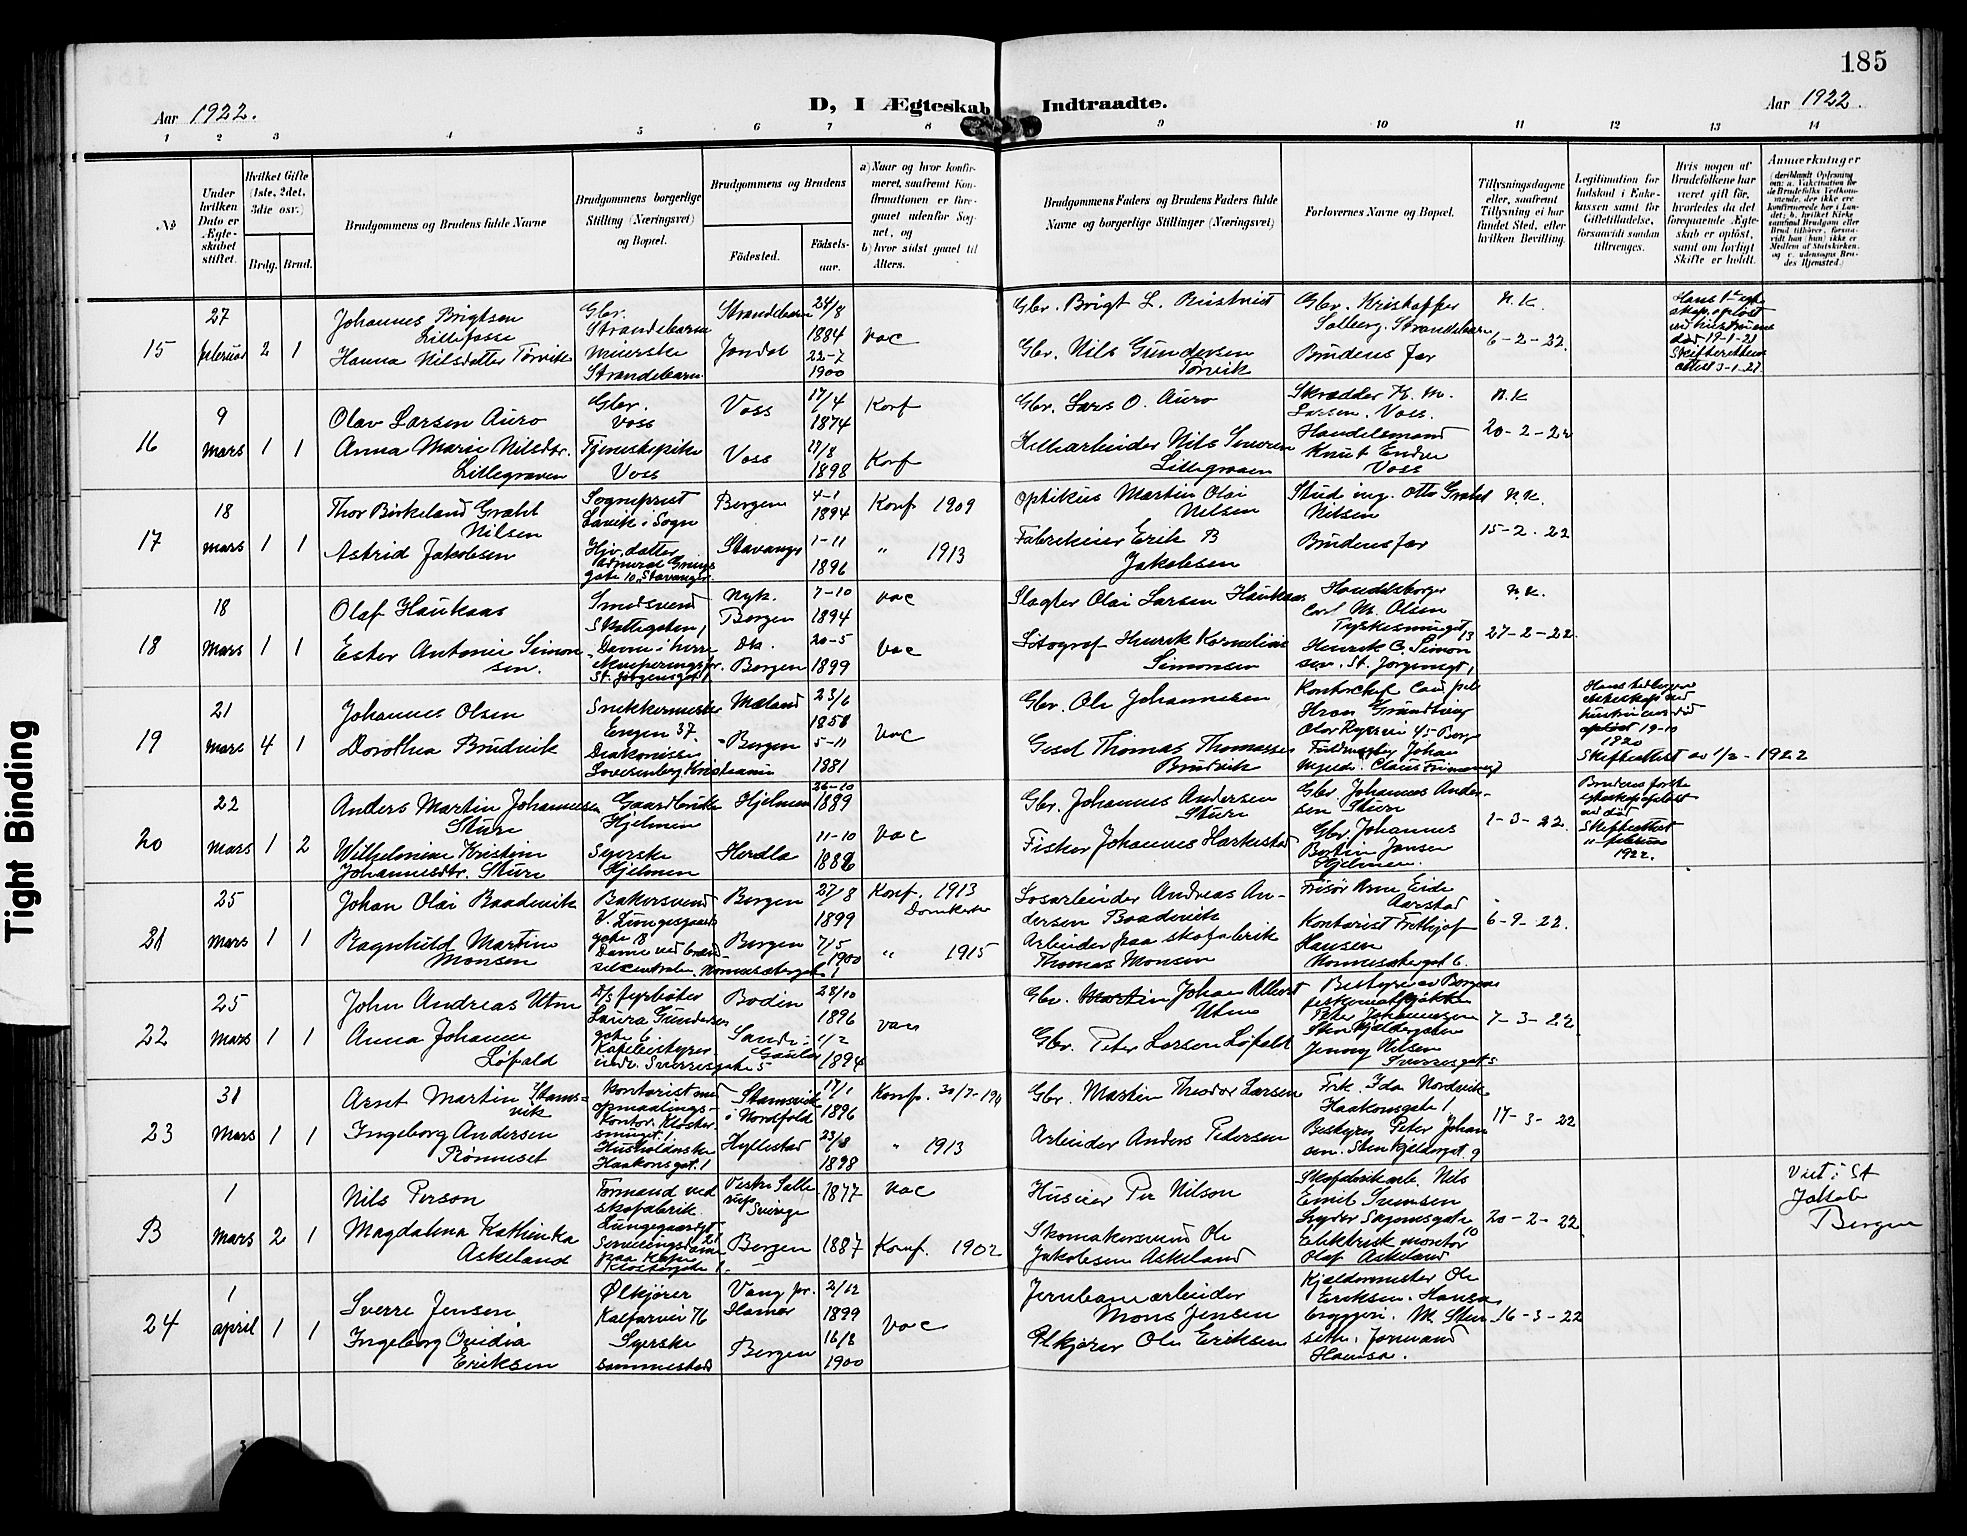 185
D, I Ægteskab Indtraadte.
Aar 1922.
Aar 1922.
1 2 3 4 5 6 7 8 9 10 11 12 13 14
No
Under
hvilken
Dato er
Ægte-
skabet
stiftet.
Hvilket Gifte
(1ste, 2det,
3die osv.)
Brdg. Brud.
Brudgommens og Brudens fulde Navne
Brudgommens borgerlige
Stilling (Næringsvei)
og Bopæl.
Brudgommens og Brudens
Fødested.
Fødsels-
aar.
a) Naar og hvor konfir-
meret, saafremt Kon-
firmationen er fore-
gaaet udenfor Sog-
net, og
b) hvor sidst gaaet til
Alters.
Brudgommens Faders og Brudens Faders fulde
Navne og borgerlige Stillinger (Næringsvei)
Forlovernes Navne og Bopæl.
Tillysningsdagene
eller, saafremt
Tillysning ei har
fundet Sted, efter
hvilken Bevilling.
Legitimation for
Indskud i Enke-
kassen samt for
Giftetilladelse,
forsaavidt saadan
tiltrænges.
Hvis nogen af
Brudefolkene har
været gift før,
hvorledes da det
foregaaende Ægte-
skab er opløst,
samt om lovligt
Skifte er holdt.
Anmerkninger
15
27
februar
2 1
Johannes Brigtsen
Lillefosse
Hanna Nilsdatter Tørvik
Gbr.
Strandebarm
Meierske
Strandebarm
Strandebarm
Jondal
24/8
1884
22-7
1900
vac
Gbr. Brigt L.
Gbr. Nils Gundersen
Tørvik
Gbr. Kristoffer
Solberg. Strandebarm
Brudens far
N.K.
6-2-22.
16
9
Mars
1 1
Olav Larsen Auro
Anna Marie Nilsdtr.
Lillegraven
Gbr.
Voss
Tjenestepike
Voss
Voss
Voss
17/4
1874
1898
Konf
Konf
Gbr. Lars O. Auro
Lillegraven
Skrædder K. M.
Larsen. Voss.
Handelsmand
Knut Endre
Voss
N.K
20-2-22
17
18
Mars
1 1
Thor Birkeland Grahl
Nilsen
Astrid Jakobsen
Sogneprest
Lavik i Sogn
Hjv. datter
gate 10. Stavanger.
Bergen
Stavanger
4-1
1894
1-11
1896
Konf 1909
" 1913
Optikus Martin Olai
Nilsen
Fabrikeier Erik B
Jakobsen
Stud ing. Otto Grahl
Nilsen
Brudens far
N.K.
15-2-22
18
18
Mars
1 1
Olaf Haukaas
Ester Antonie Simon
sen.
Smedsvend
Skottegaten 1
Dame i herre
ekviperingsfor.
St. Jørgensgt 1
Nyk.
Bergen
Dk.
Bergen
7-10
1894
20-5
1899
vac
vac
Slagter Olai Larsen Haukaas
Litograf Henrik Kornelius
Simonsen
Handelsborger
Carl M. Olsen
Henrik C. Simon
sen. St. Jørgensgt 1
N.K.
27-2-22.
19
21
Mars
4 1
Johannes Olsen
Dorothea Brudvik
Snekkermester
Engen 37.
Diakonisse
Lovisenberg Kristiania
Mæland
Bergen
23/6
1858
5-11
1881
vac
Gbr. Ole Johannesen
Gesel Thomas Thomassen
Brudvik
19-10
1920
Skifteattest av 1/2-1922
20
22
Mars
1 2
Anders Martin Johannesen
Sture
Wilhelmine Kristine
Johannesdtr. Sture
Gaardbruker
Hjelmen
Syerske
Hjelmen
Hjelmen
Herdla
26-10
1889
11-10
1886
vac
Gbr. Johannes Andersen
Sture
Fisker Johannes Harkestad
Gbr Johannes Ander-
sen Sture
Gbr. Johannes
Bertin Jansen
Hjelmen.
1-3-22.
Brudens første
egteskap opløst
ved død
Skifteattest
11 februar
1922.
21
25
Mars
1 1
Johan Olai Baadsvik
Ragnhild Martine
Monsen
Bakersvend
gate 18
Bergen
Bergen
27/8
1899
7/5
1900
Konf. 1913
Domkirken
" 1915
Løsarbeider Andreas An-
dersen Baadsvik
Arbeider paa skofabrik
Thomas Monsen
Frisør Arne Eide
Aarstad
Kontorist Frithjof
Hansen
6-9-22.
22
25
Mars
1 1
John Andreas Utne
Anna Johanne
Løfald
D/s fyrbøter
Laura Gundersens
gate 6.
Sverresgate 5
Bodin
Sande i
Gaular
28/10
1896
1/2
1894
vac
Gbr. Johan
Utne
Gbr. Peter Larsen Løfald
Peter Johannesen
Jenny Nilsen
Sverresgat 5
7-3-22
23
31
Mars
1 1
Arnt Martin Stams-
vik
Ingeborg Andersen
Rønneset
Kontorist ved
opmaalings-
kontor. Kloster
smuget 1.
Husholderske
Haakonsgt. 1
Stamsvik
i Nordfold
Hyllestad
17/1
1896
23/8
1898
" 1913
Gbr. Martin Theodor Larsen
Arbeider Anders Pedersen
Frk. Ida Nordvik
Haakonsgate 1
Bestyrer Peter Johan
sen. Sten Kjeldergt. 9
17-3-22
B
1
Mars
2 1
Nils Person
Magdalena Kathinka
Askeland
Formand ved
skofabrik.
Lungegaardsgt
21
Serveringsdame
paa Kafe
Klostergate 1.
Vestre Salle
rup
Sverige
Bergen
1877
1887
vac
Konf. 1902
Huseier Per Nilson
Skomakersvend Ole
Jakobsen Askeland
Skofabrikarb. Nils
Emil Svensen
Lyder Sagensgate
10
Elektrisk montør
Olaf Askeland
20-2-22
Viet i St
Jakob
Bergen
24
1
april
1 1
Sverre Jensen
Ingeborg Ovidia
Eriksen
Ølkjører
Kalfarvei 76
Syerske
sammesteds
Vang pr.
Hamar
Bergen
2/12
1899
16/8
1900
vac
Jernbanearbeider
Mons Jensen
Ølkjører Ole Eriksen
Kjældermester Ole
Eriksen. Hansa
bryggeri. M. Sten
seth. Formand
Hansa.
16-3-22
Tight Binding